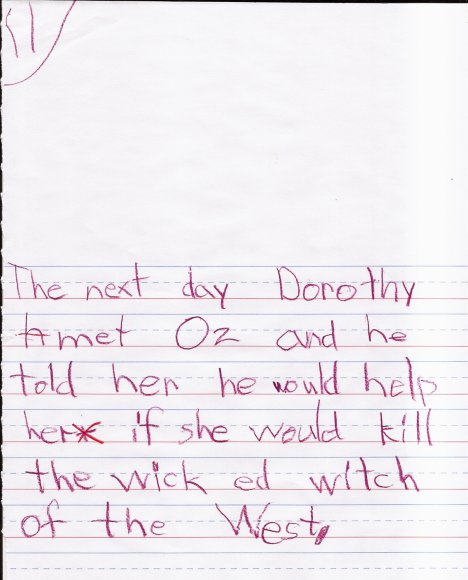 11
The next day Dorothy
met Oz and he
told her he would help
her if she would kill
the wick ed witch
of the West,